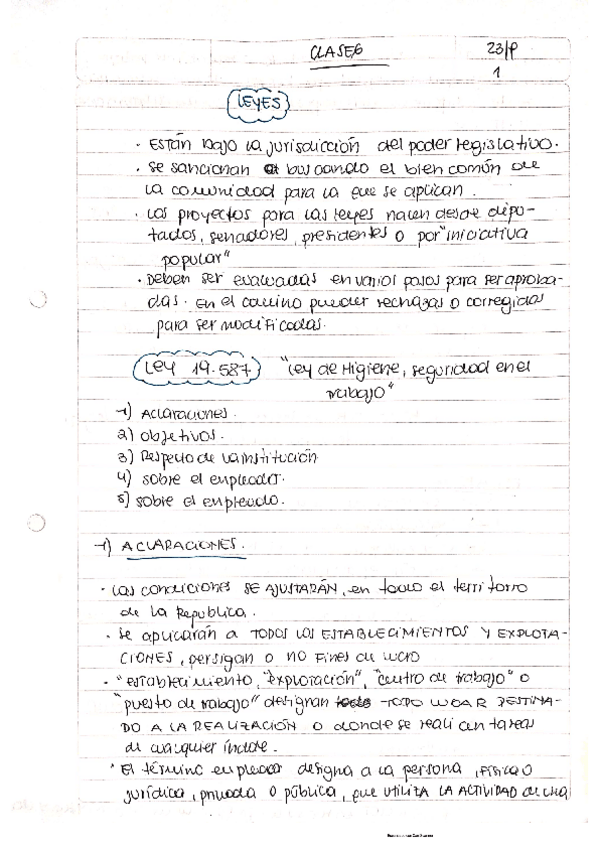 CLASE 6
23/9
1
LEYES
· Están bajo la jurisdicción del poder legislativo.
· Se sancionan buscando el bien común de
la comunidad para la que se aplican.
· Los proyectos para las leyes nacen desde dipu-
tados, senadores, presidentes o por "iniciativa
popular"
· Deben ser evaluadas en varios pasos para ser aproba-
das. En el camino pueden rechazas o corregidas
para ser modificadas.
Ley 19.587 "Ley de Higiene, seguridad en el
trabajo"
1) Aclaraciones.
2) objetivos.
3) Respecto de la institución
4) sobre el empleador.
5) sobre el empleado.
1) ACLARACIONES.
· Las condiciones SE AJUSTARÁN, en todo el territorio
de la Republica.
· Se aplicarán a TODOS LOS ESTABLECIMIENTOS Y EXPLOTA-
CIONES, persigan o no fines de lucro
· "establecimiento, "explotación", "centro de trabajo" o
"puesto de trabajo" designan TODO LUGAR DESTINA-
DO A LA REALIZACIÓN o donde se realicen tareas
de cualquier índole.
· El término empleador designa a la persona, física o
jurídica, privada o pública, que UTILIZA LA ACTIVIDAD de una